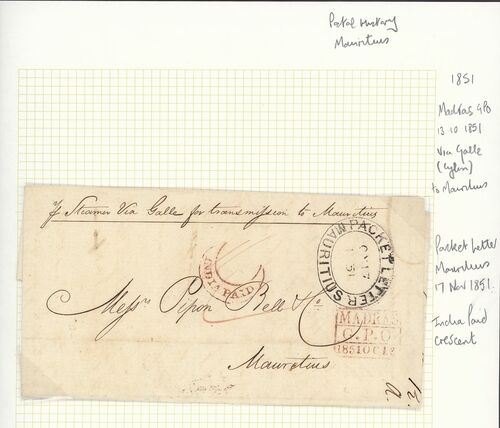 Postal History
Mauritius
1851
Madras GPO
13 10 1851
Via Galle
(Ceylon)
to Mauritius
Packet Letter
Mauritius
17 Nov 1851.
India Paid
crescent
p Steamer Via Galle for transmission to Mauritius
PACKET LETTER MAURITIUS
INDIA PAID
Messrs Pipon Bell & Co
MADRAS
G.P.O.
1851 OC 13
Mauritius